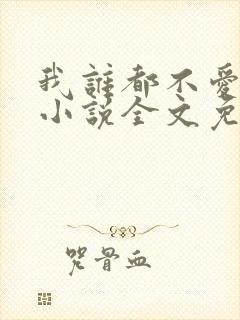 我誰都不愛
小說全文免
咒骨血